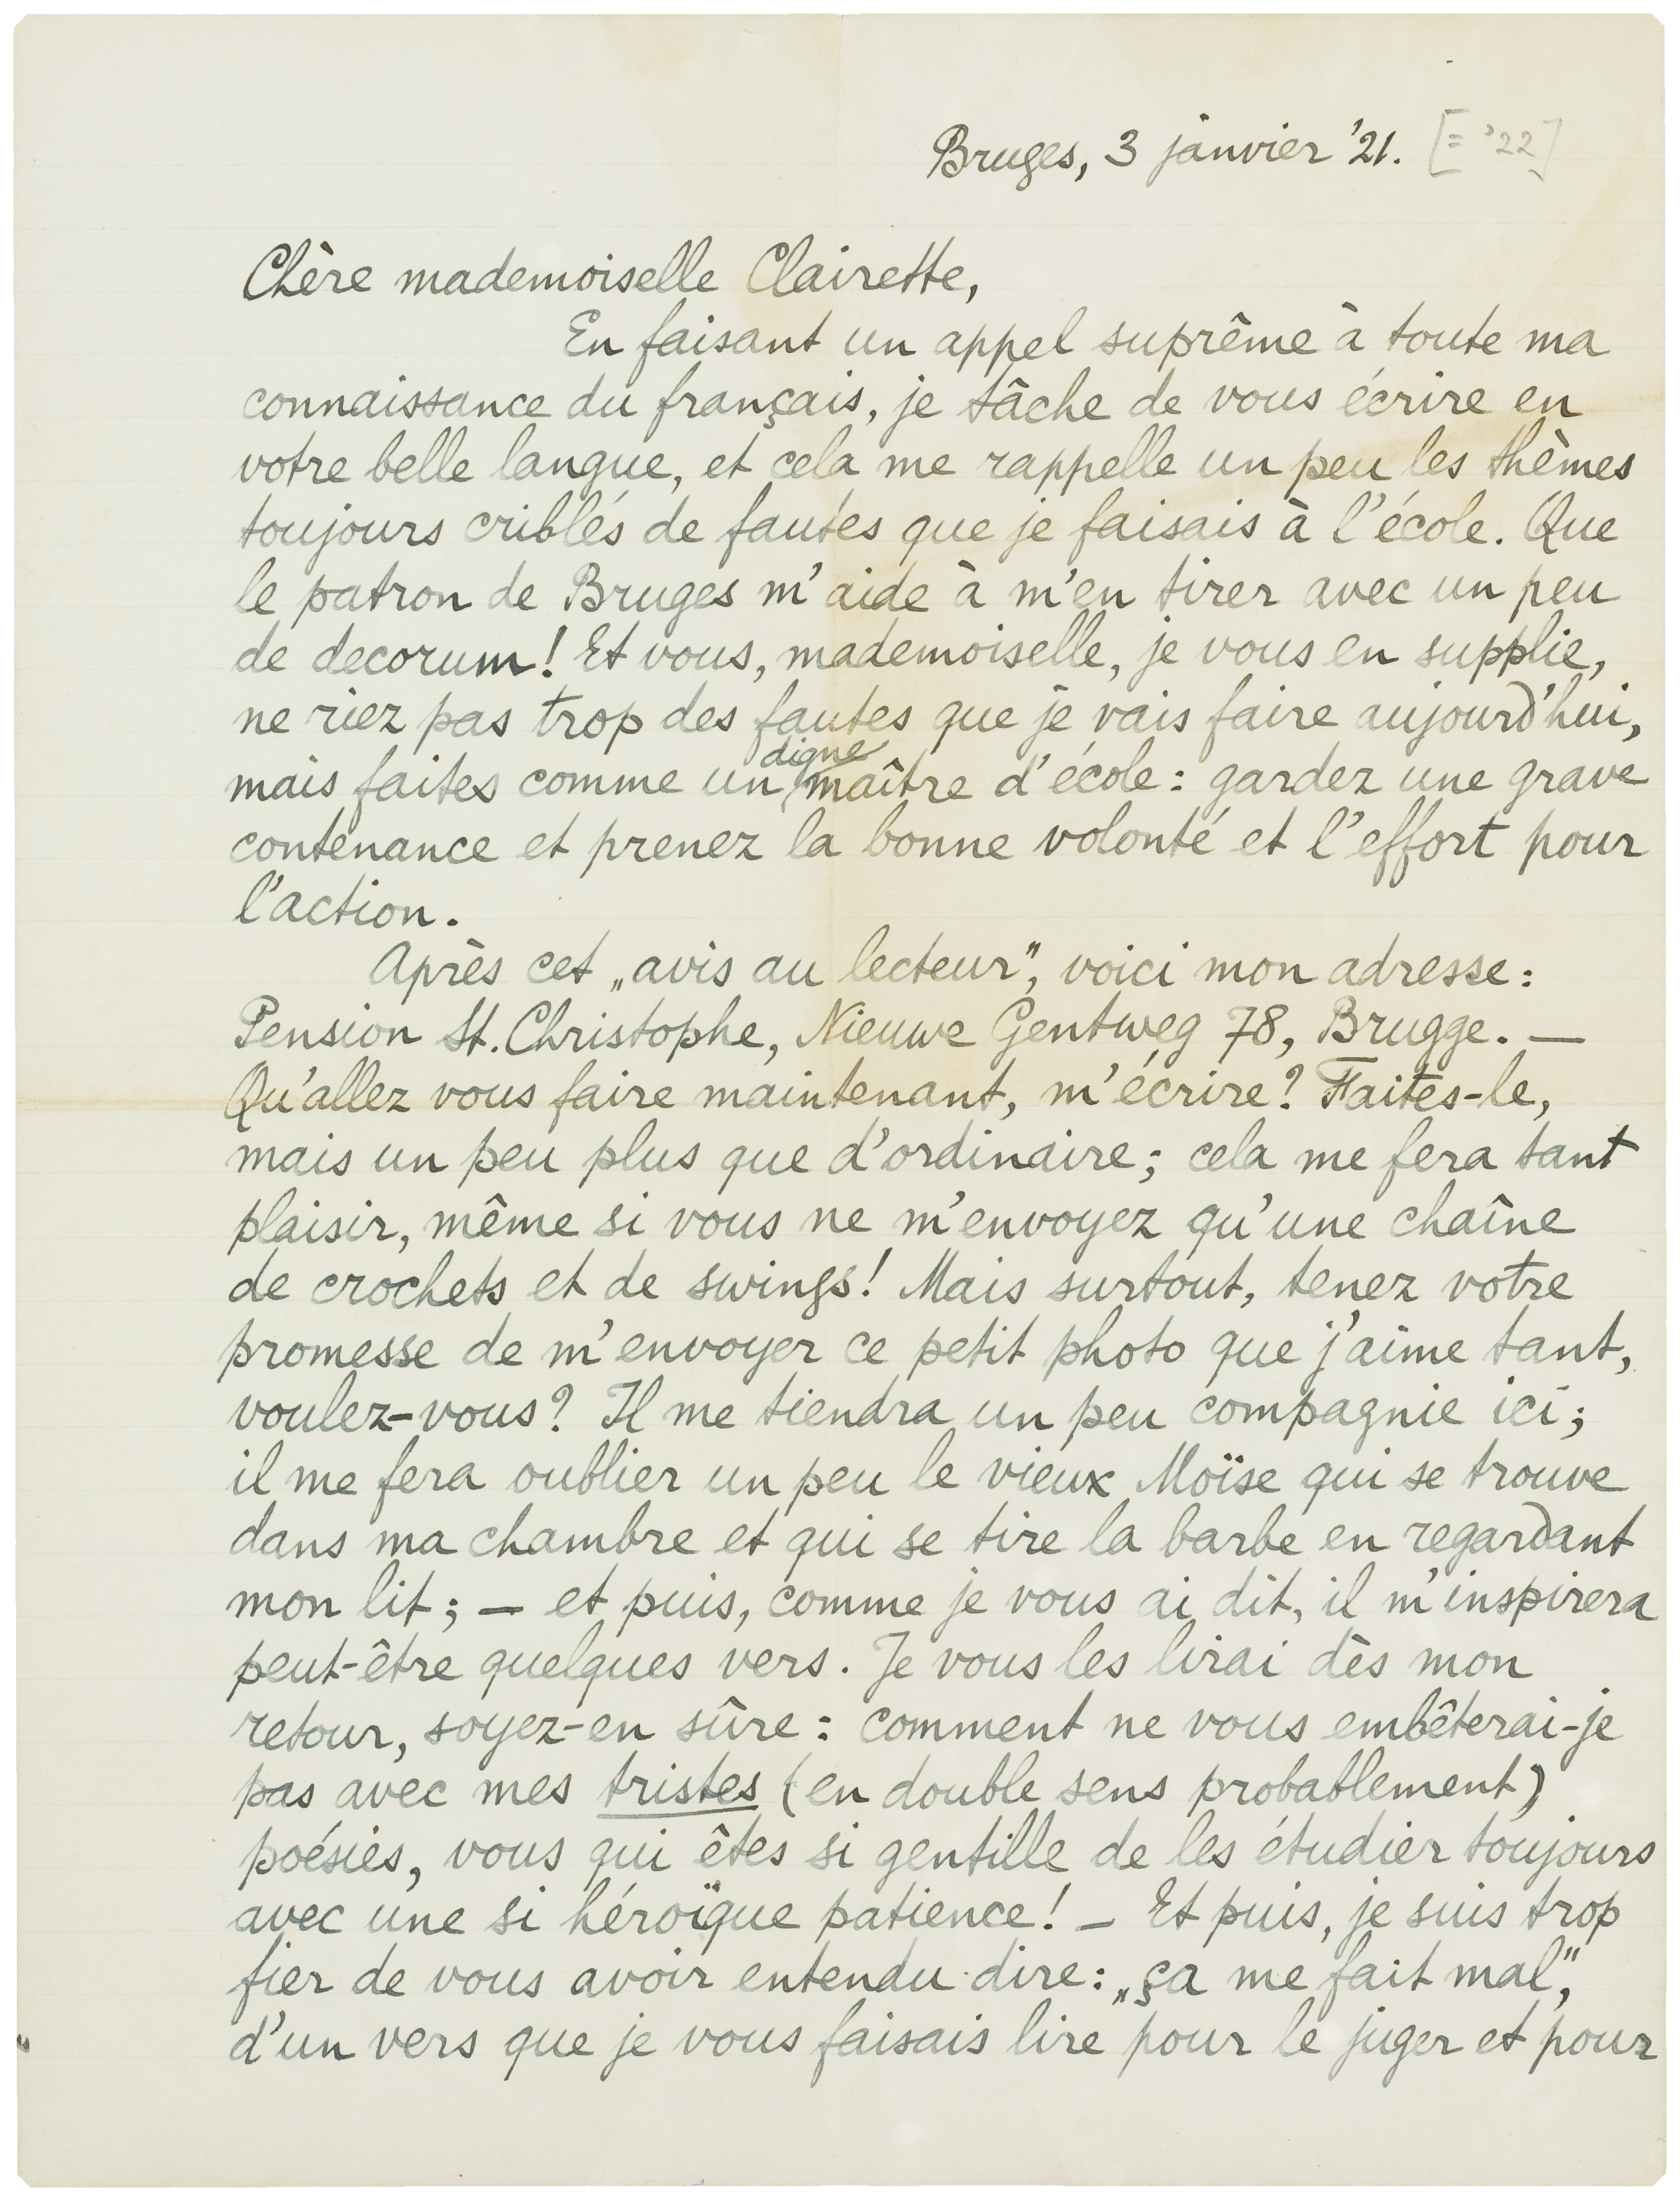 Bruges, 3 janvier '21. [= '22]
Chère mademoiselle Clairette,
En faisant un appel suprême à toute ma
connaissance du français, je tâche de vous écrire en
votre belle langue, et cela me rappelle un peu les thèmes
toujours criblés de fautes que je faisais à l'école. Que
le patron de Bruges m'aide à m'en tirer avec un peu
de decorum! Et vous, mademoiselle, je vous en supplie,
ne riez pas trop des fautes que je vais faire aujourd'hui,
mais faites comme un digne maître d'école: gardez une grave
contenance et prenez la bonne volonté et l'effort pour
l'action.
Après cet „avis au lecteur", voici mon adresse:
Pension St. Christophe, Nieuwe Gentweg 78, Brugge. —
Qu'allez vous faire maintenant, m'écrire? Faites-le,
mais un peu plus que d'ordinaire; cela me fera tant
plaisir, même si vous ne m'envoyez qu'une chaîne
de crochets et de swings! Mais surtout, tenez votre
promesse de m'envoyer ce petit photo que j'aime tant,
voulez-vous? Il me tiendra un peu compagnie ici;
il me fera oublier un peu le vieux Moïse qui se trouve
dans ma chambre et qui se tire la barbe en regardant
mon lit; — et puis, comme je vous ai dit, il m'inspirera
peut-être quelques vers. Je vous les lirai dès mon
retour, soyez-en sûre: comment ne vous embêterai-je
pas avec mes tristes (en double sens probablement)
poésies, vous qui êtes si gentille de les étudier toujours
avec une si héroïque patience! — Et puis, je suis trop
fier de vous avoir entendu dire: „ça me fait mal",
d'un vers que je vous faisais lire pour le juger et pour